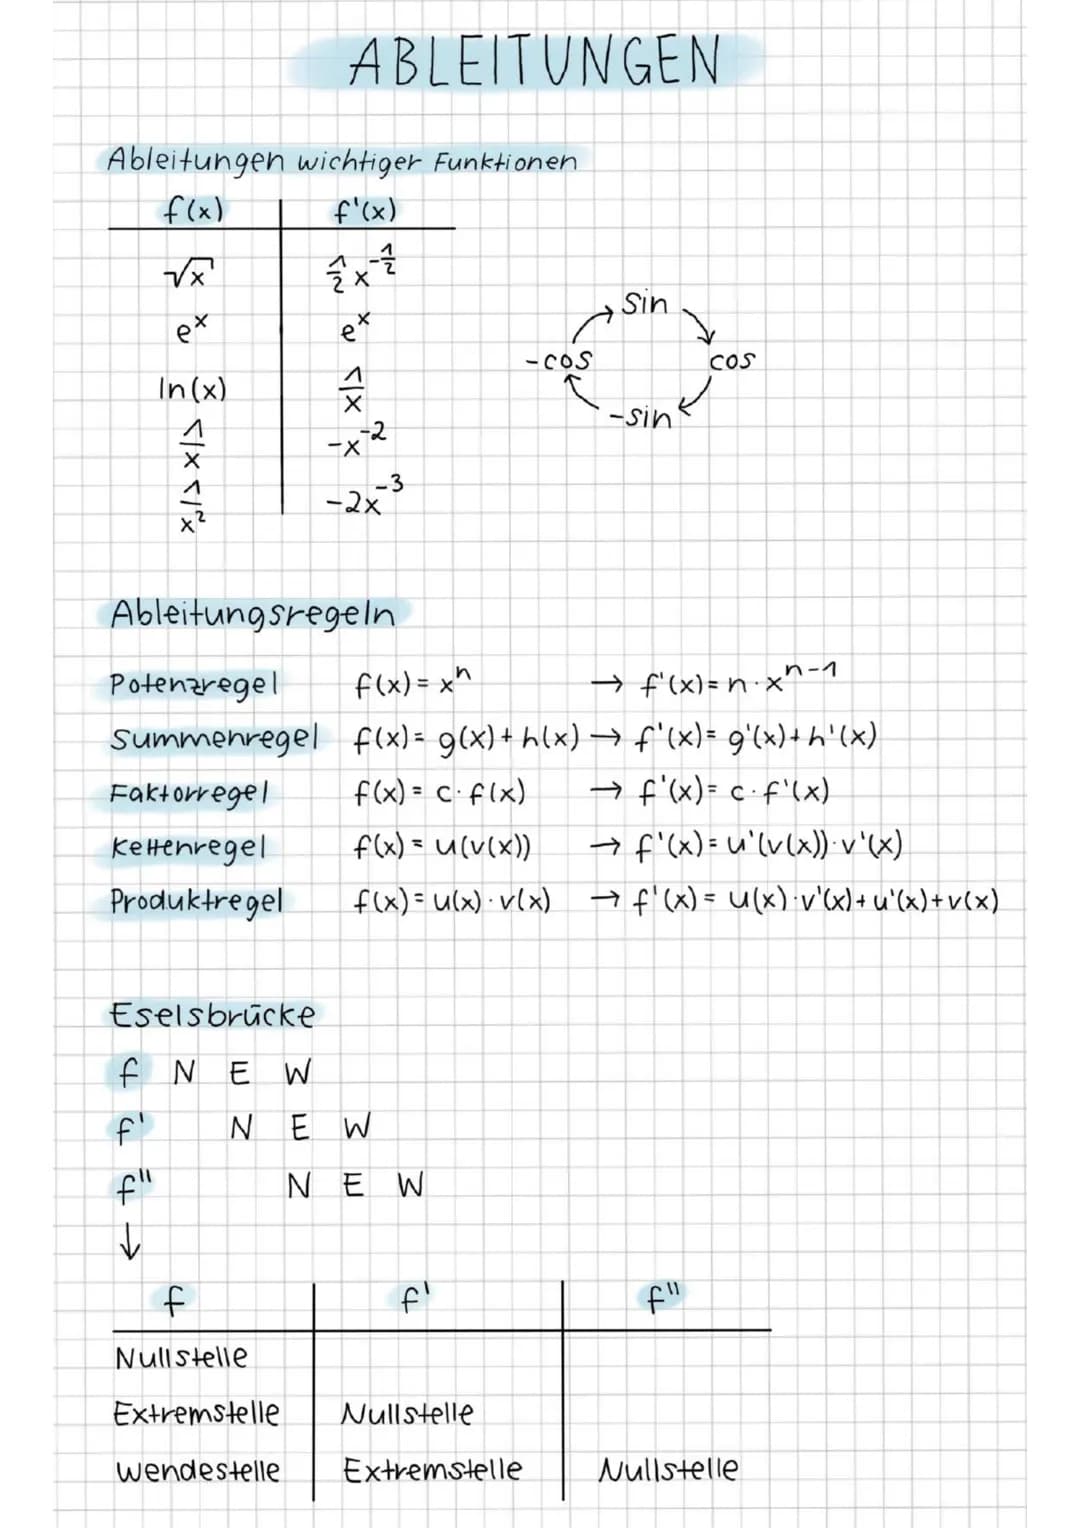 ABLEITUNGEN
Ableitungen wichtiger Funktionen
f(x) f'(x)
√x 1/2 x^-1/2
e^x e^x
ln(x) 1/x
1/x -x^-2
1/x² -2x^-3
sin
-cos cos
-sin
Ableitungsregeln
Potenzregel f(x) = x^n → f'(x) = n · x^n-1
Summenregel f(x) = g(x) + h(x) → f'(x) = g'(x) + h'(x)
Faktorregel f(x) = c · f(x) → f'(x) = c · f'(x)
Kettenregel f(x) = u(v(x)) → f'(x) = u'(v(x)) · v'(x)
Produktregel f(x) = u(x) · v(x) → f'(x) = u(x) · v'(x) + u'(x) + v(x)
Eselsbrücke
f N E W
f' N E W
f'' N E W
↓
f f' f''
Nullstelle
Extremstelle Nullstelle
Wendestelle Extremstelle Nullstelle